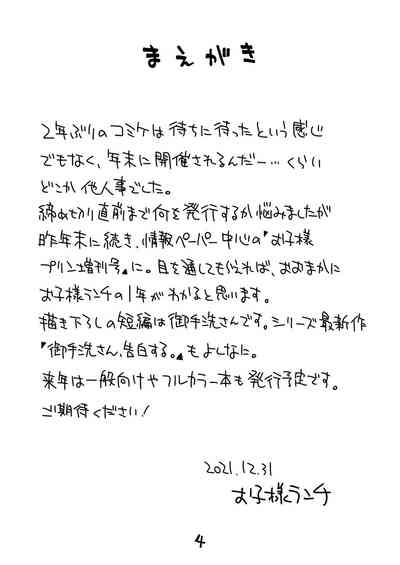 まえがき
2年ぶりのコミケは待ちに待ったという感じ
でもなく、年末に開催されるんだー…くらい
どこか他人事でした。
締め切り直前まで何を発行するか悩みましたが
昨年末に続き、情報ペーパー中心の『お子様
プリン増刊号』に。目を通しても位れば、おおまかに
お子様ランチの1年がわかると思います。
描き下ろしの短編は御手洗さんです。シリーズ最新作
『御手洗さん、告白する。』もよしなに。
来年は一般向けやフルカラー本も発行予定です。
ご期待ください！
2021.12.31
お子様ランチ
4